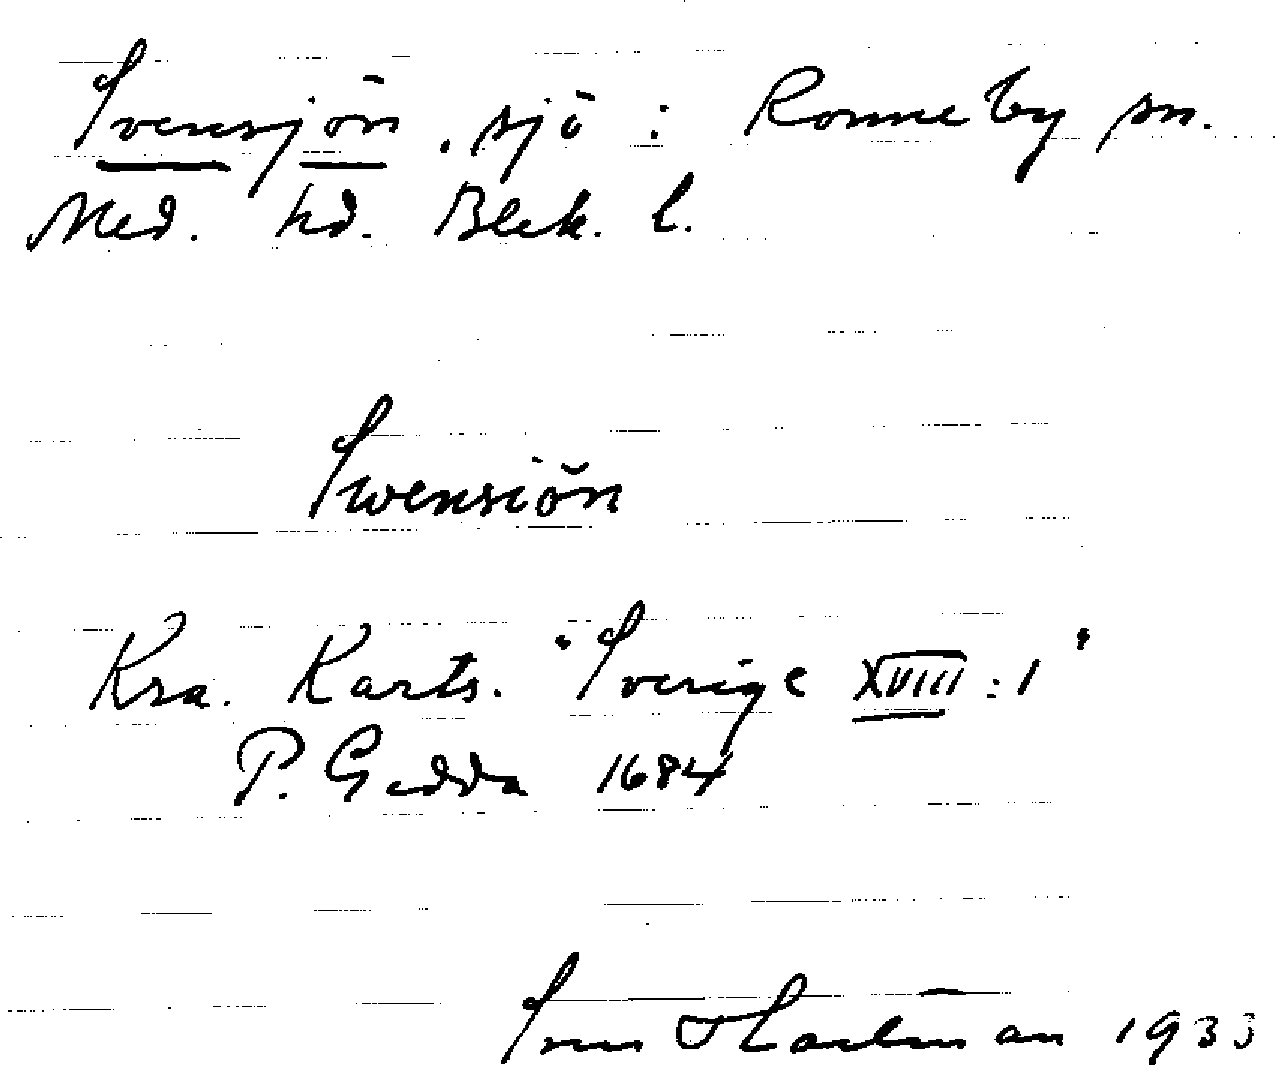 Svensjön, sjö: Ronneby sn.
Med. hd. Blek. l.
Swensiön
Kra. Karts. "Sverige XVIII:1"
P. Gedda 1684
Sven Hartman 1933